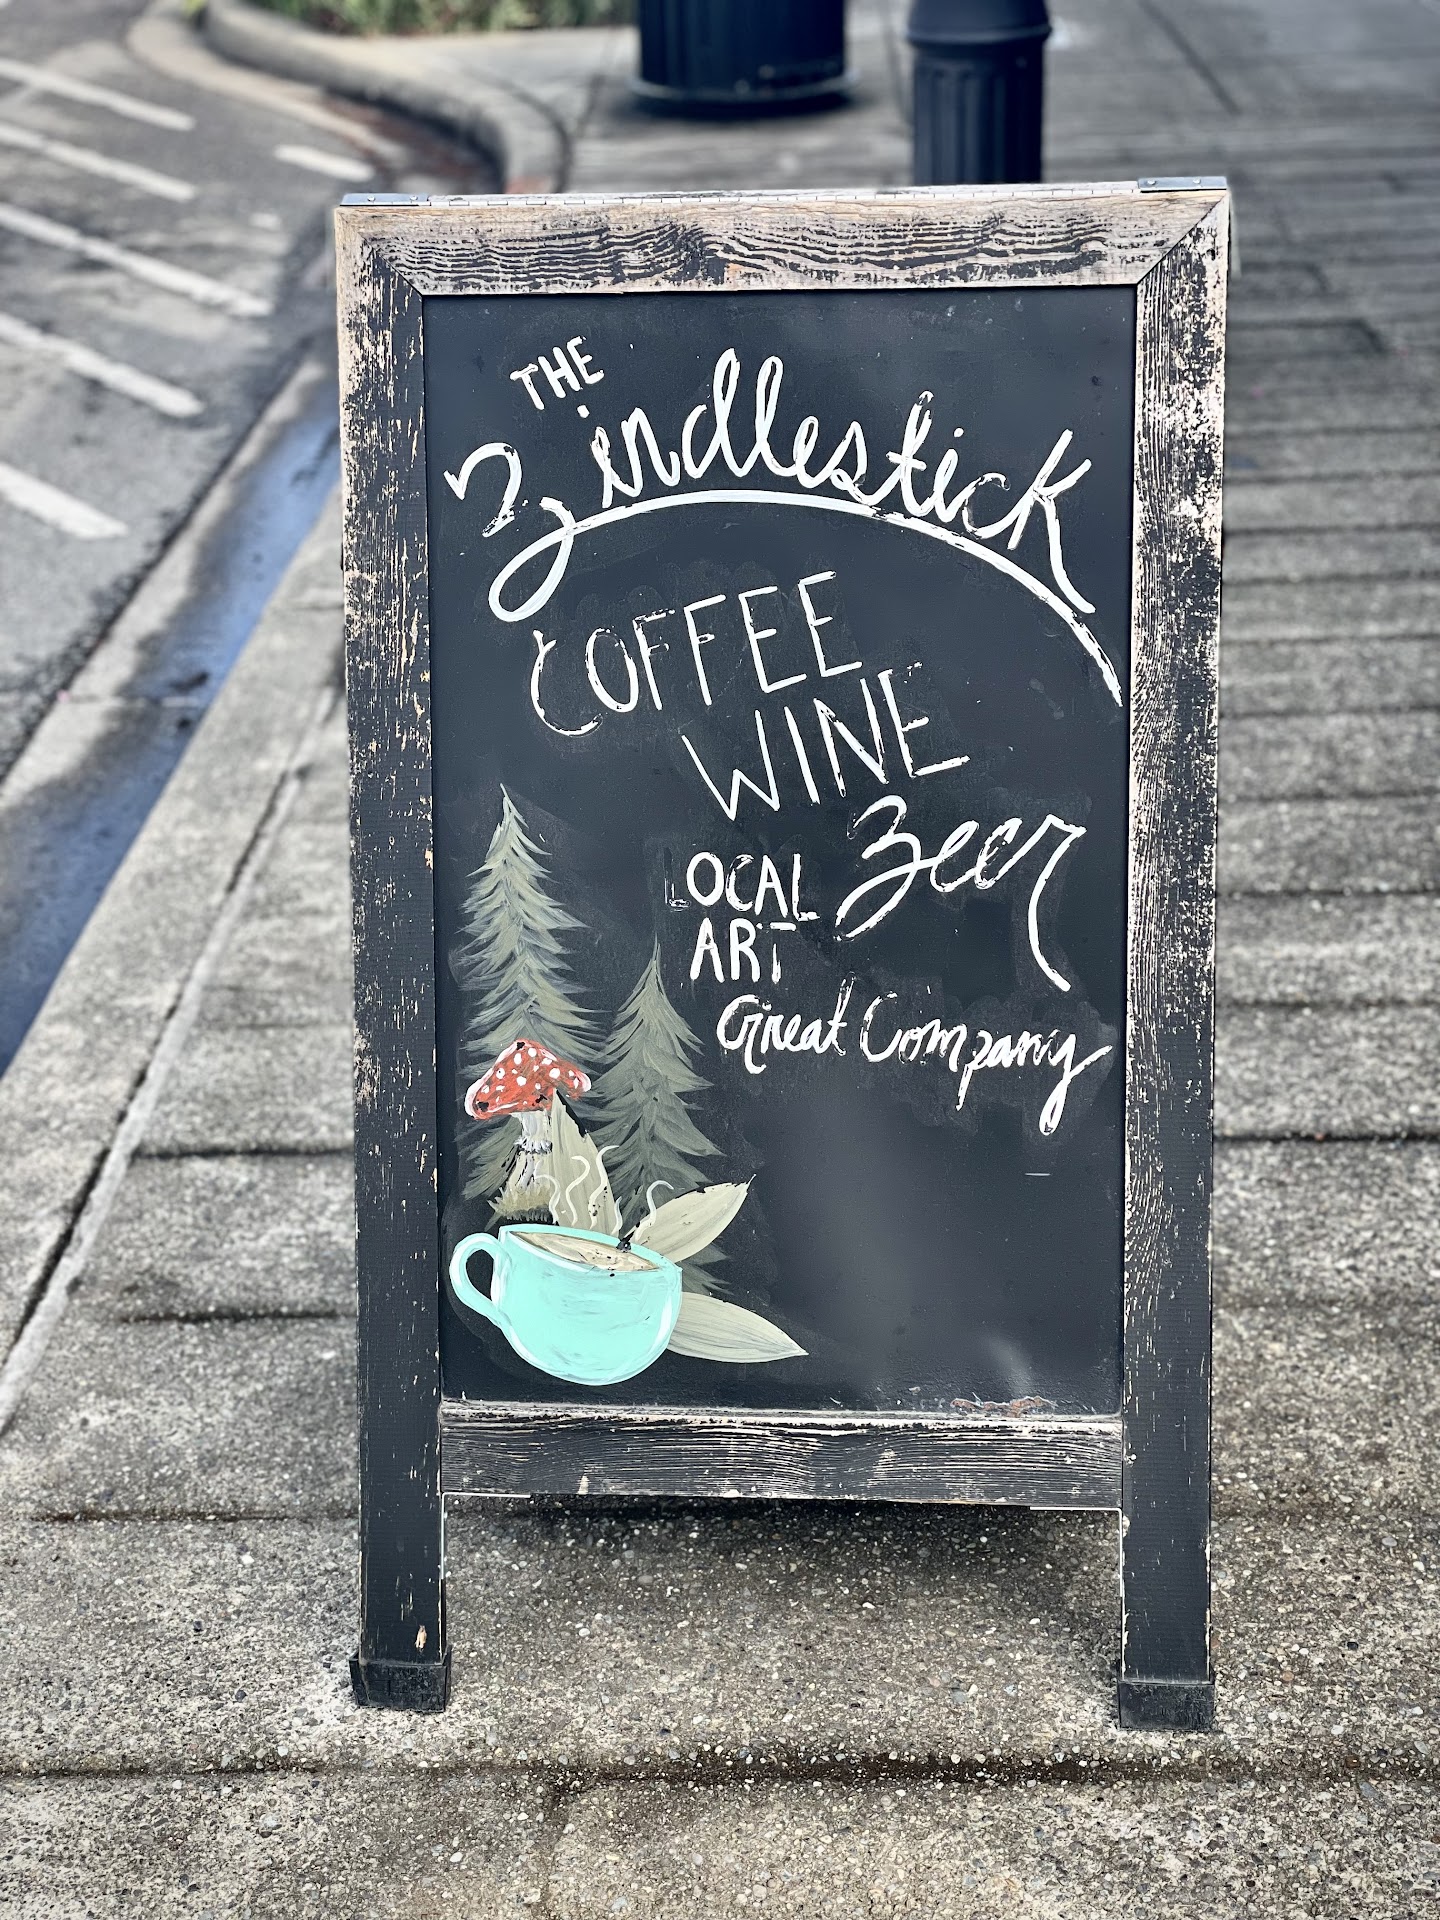 THE
Zindlestick
COFFEE
WINE
Beer
LOCAL
ART
Great Company